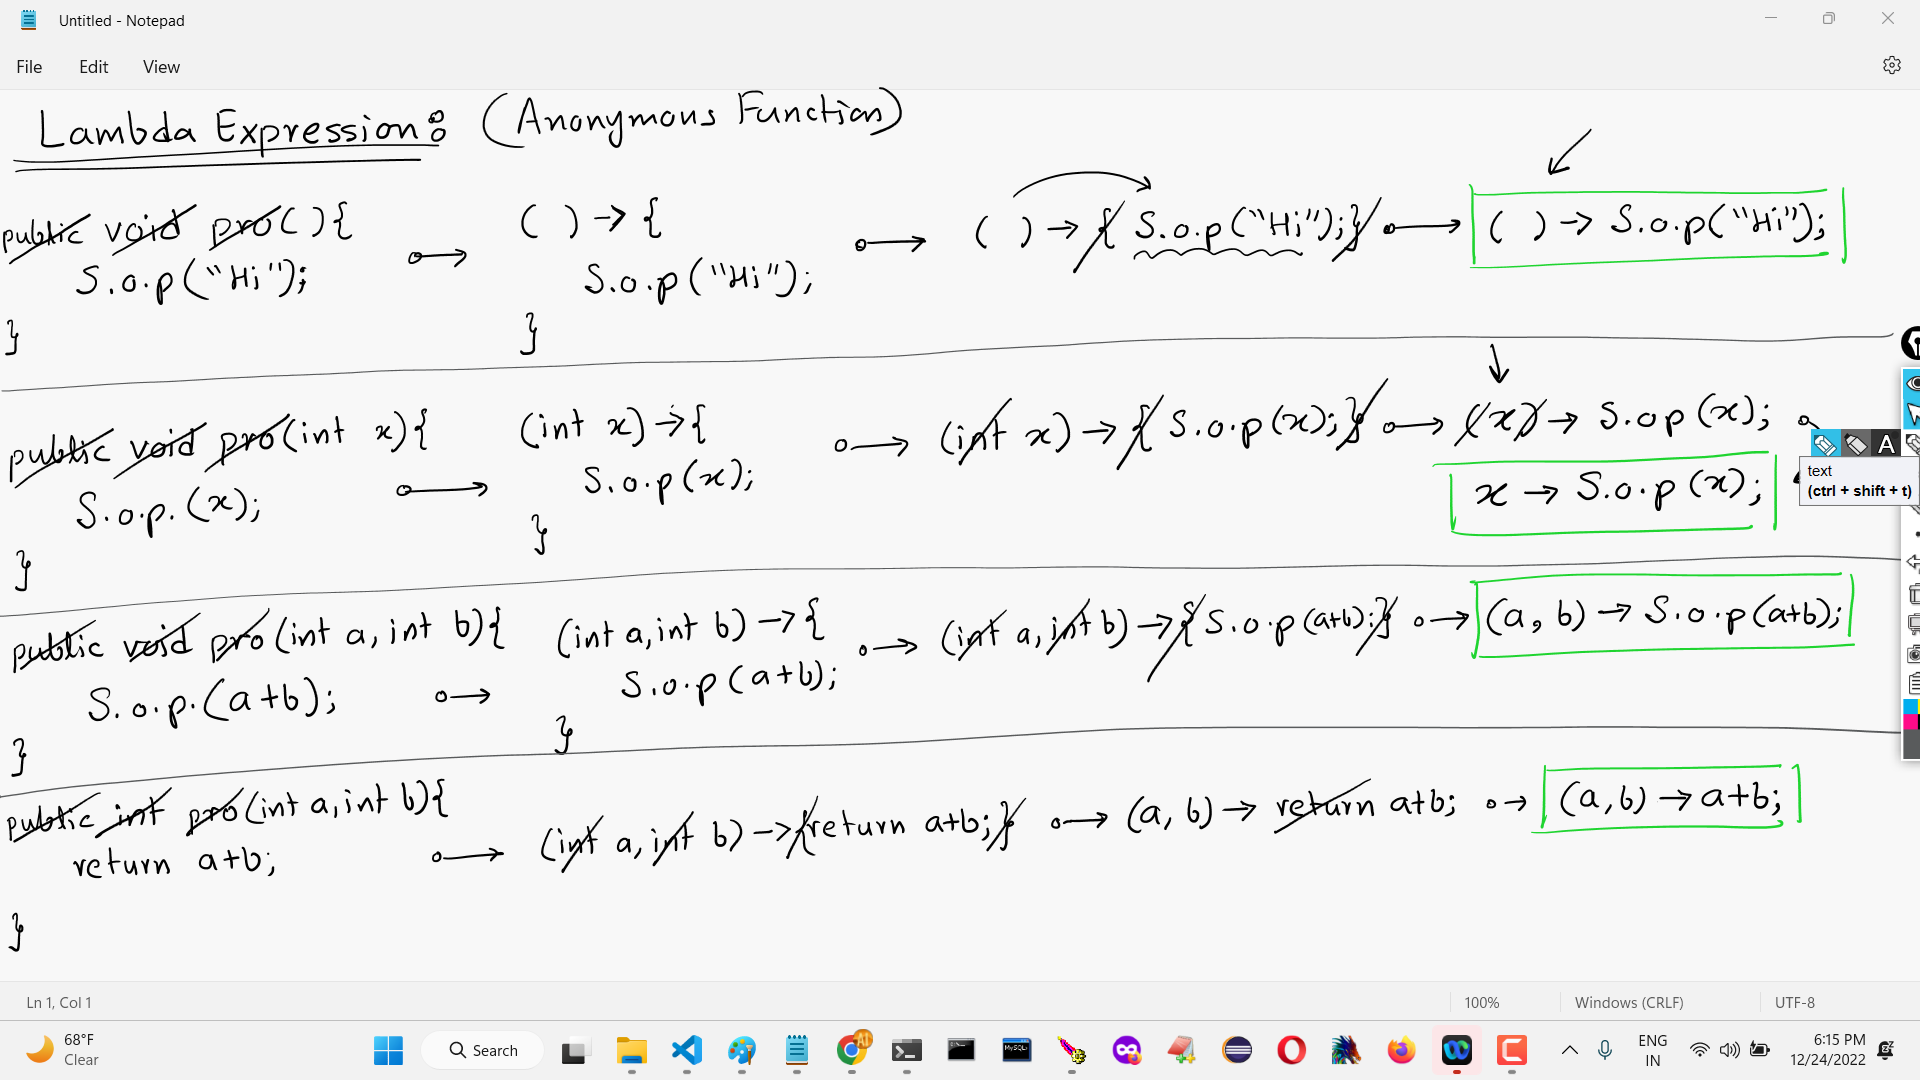 Untitled - Notepad
File Edit View
Lambda Expression: (Anonymous Function)
public void pro( ){
S.o.p("Hi");
}
( ) → {
S.o.p("Hi");
}
( ) → { S.o.p("Hi"); }
( ) → S.o.p("Hi");
public void pro(int x){
S.o.p.(x);
}
(int x) → {
S.o.p(x);
}
(int x) → { S.o.p(x); }
(x) → S.o.p(x);
x → S.o.p(x);
text
(ctrl + shift + t)
public void pro(int a, int b){
S.o.p.(a+b);
}
(int a, int b) → {
S.o.p(a+b);
}
(int a, int b) → { S.o.p(a+b); }
(a, b) → S.o.p(a+b);
public int pro(int a, int b){
return a+b;
}
(int a, int b) → {return a+b; }
(a, b) → return a+b;
(a, b) → a+b;
Ln 1, Col 1 100% Windows (CRLF) UTF-8
68°F
Clear
Search
ENG
IN
6:15 PM
12/24/2022